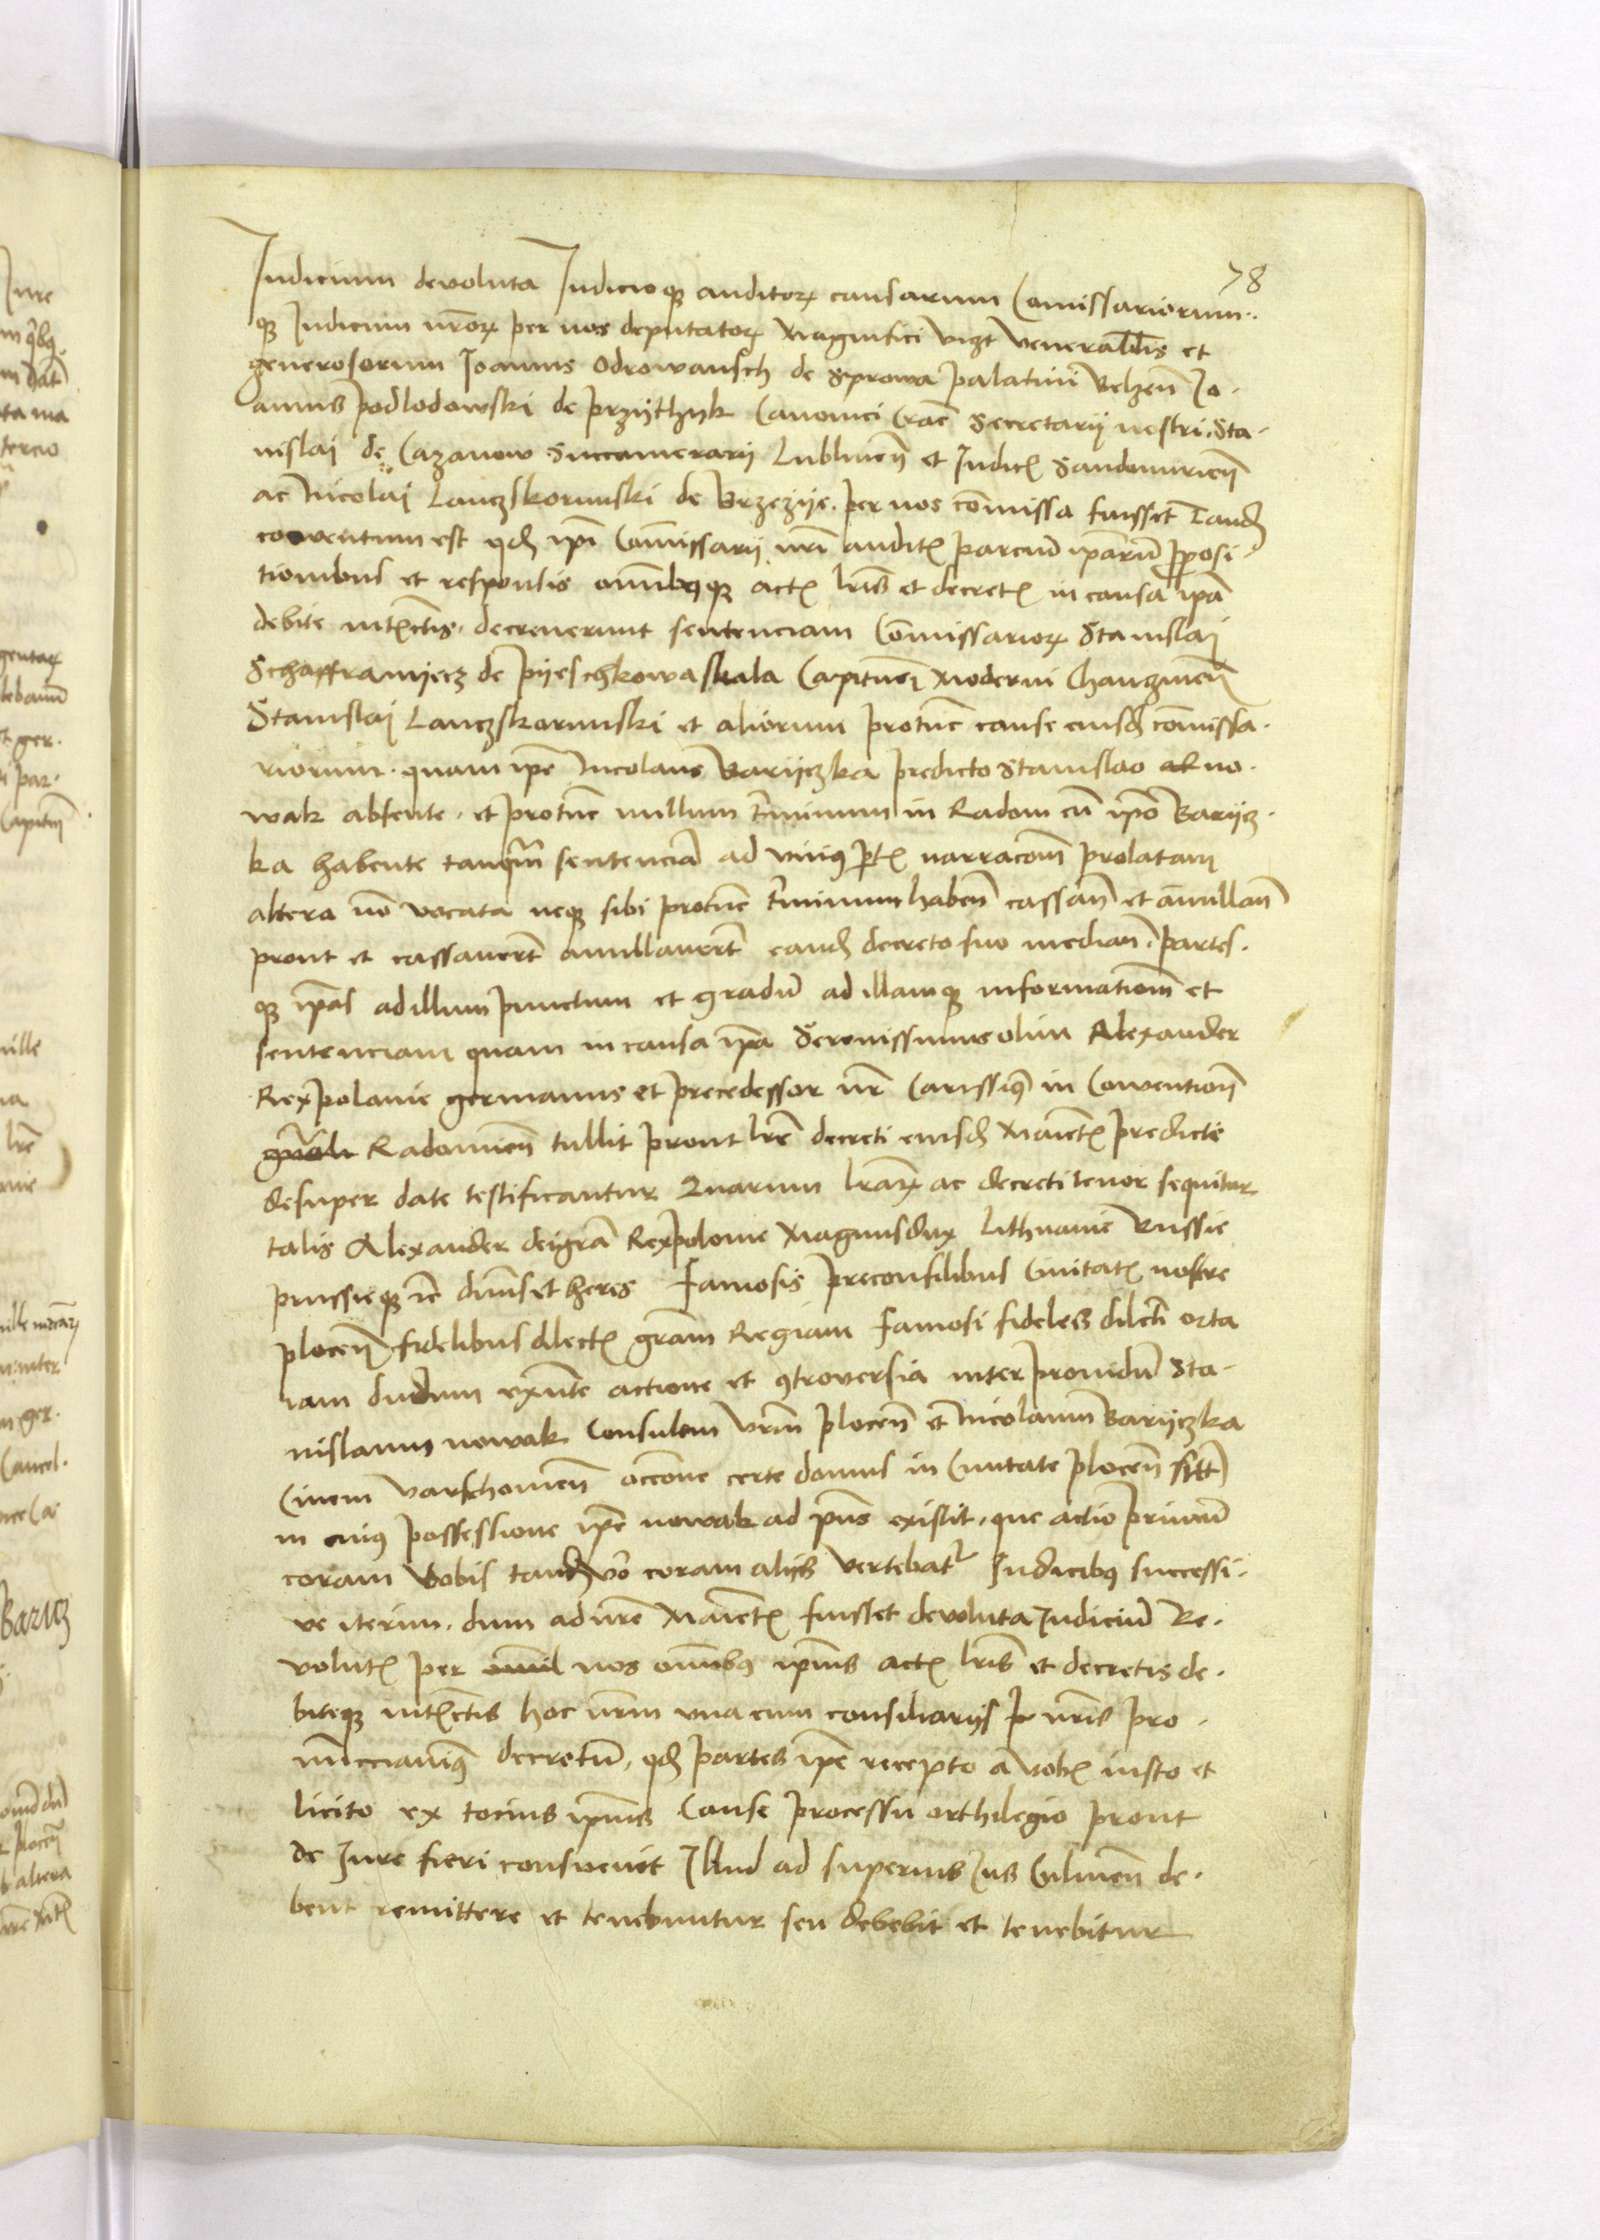 78
Iudicium devoluta Iudicioqꝫ auditorꝝ causarum Com̄issariorum
qꝫ Iudicium nr̄orꝝ per nos deputatorꝝ Magnifici vizt venerabilis et
generosorum Joannis Odrowansch de Sprowa palatini Belzen̄ Jo-
annis podlodowski de przythyk Canonici Crac̄ Secretarij nostri. Sta-
nislai de Cazanow Succamerarij Lublinen̄ et Iudicꝭ Sandomirien̄
ac Nicolai Lanczskorunski de Brzezije. per nos com̄issa fuisset Tandꝫ
conventum est qdꝫ ip̄i Com̄issarij nr̄i auditꝭ parcium ip̄arum ꝓposi-
tionibus et responsis omnibꝰqꝫ actꝭ lr̄is et decretꝭ in causa ip̄a
debite int̄ectis. decreverunt sentenciam Com̄issariorꝝ Stanislai
Schafframijecz de pijeschkowaskala Capitanei Moderni Chanczinen̄
Stanislai Lanczskorunski et aliorum protunc cause eiusdꝫ com̄issa-
riorum. quam ip̄e Nicolaus Barijczka predicto Stanislao no-
wak absente. et protunc nullum t̄minum in Radom cū ip̄o Barijcz-
ka habente tanqᷓm sentenciā ad uniꝰ ꝑtꝭ narracōm prolatam
altera nō vocata neqꝫ sibi protunc t̄minum haben̄ cassan̄ et an̄ullan̄
prout et cassaver̄t anullaver̄t eandꝫ decreto suo median̄. partes.
qꝫ ip̄as ad illum punctum et gradū ad illamqꝫ informationem et
sentenciam quam in causa ip̄a Serenissimus olim Alexander
Rex polonie germanus et precedessor nr̄ Carissimꝰ in Conventione
gn̄ali Radomien̄ tullit prout lr̄e decreti eiusdꝫ Maiestꝭ predicte
desuper date testificantur Quarum lr̄arꝝ ac decreti tenor sequitur
talis Alexander dei gr̄a Rex polonie Magnus dux Lithuanie Russie
prussieqꝫ ec̄ dn̄us et heres Famosis preconsulibus Civitatꝭ nostre
plocen̄ fidelibus dilectꝭ gr̄am Regiam Famosi fideles dilecti orta
iam dudum exn̄te actione et ꝯtroversia inter providū Sta-
nislaum nowak Consulem vr̄m plocen̄ et Nicolaum Barijczka
Civem varschovien̄ occ̄one certe domus in Civitate plocen̄ sitē
in cuiꝰ possessione ip̄e nowak ad pn̄s existit. que actio primū
coram vobis tandꝫ vō coram alijs vertebat᷑ Iudicibꝰ successi-
ve iterum. dum ad nr̄e Maiestꝭ fuisset devoluta Iudiciū Re-
volutꝭ per nos omnibꝰ ip̄ius actꝭ lr̄is et decretis de-
biteqꝫ int̄ectis hoc nr̄m una cum consiliarijs nr̄is pro-
nuncciavimꝰ decretū. qdꝫ partes ip̄e recepto a vobꝭ iusto et
licito ex tocius ip̄ius Cause processu orthilegio prout
de Iure fieri consuevit Illud ad superius Ius Culmen̄ de-
bent remittere et tenebuntur seu debebit et tenebitur